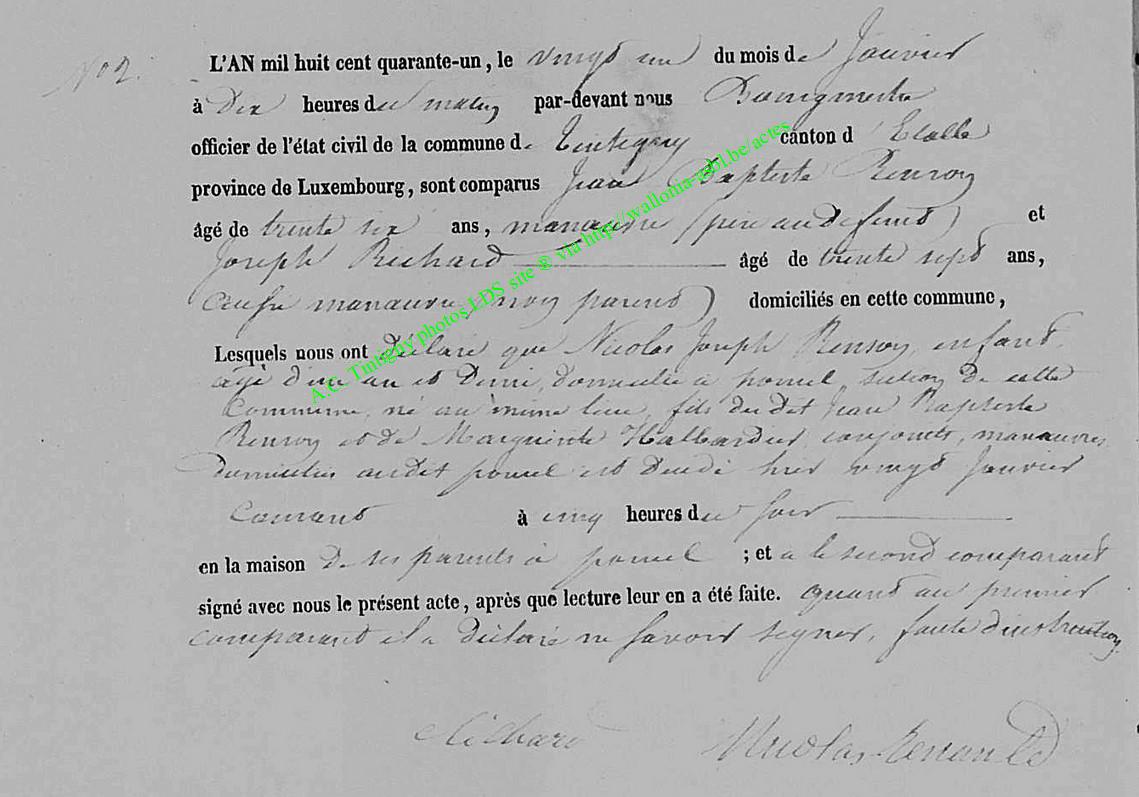 N° 2.
L'AN mil huit cent quarante-un, le vingt un du mois de Janvier
à Dix heures du matin par-devant nous Bourgmestre
officier de l'état civil de la commune de Tintigny canton d'Etalle
province de Luxembourg, sont comparus Jean Baptiste Renson
âgé de trente six ans, manœuvre (père au defunt) et
Joseph Richard âgé de trente sept ans,
aussi manœuvre, non parent) domiciliés en cette commune,
Lesquels nous ont déclaré que Nicolas Joseph Renson, enfant
agé d'un an et Demi, domicilié à poncel, section de cette
Commune, né au même lieu, fils du dit Jean Baptiste
Renson et de Marguerite Halbardier, conjoints, manœuvres
domiciliés audit poncel est décédé hier vingt Janvier
Courant à cinq heures du soir
en la maison de ses parents à poncel ; et a le second comparant
signé avec nous le présent acte, après que lecture leur en a été faite. quant au premier
comparant il a déclaré ne savoir signer, faute d'instruction.
Richard Nicolas Renauld
A.C. Tintigny photos LDS site ® via http://wallonia-asbl.be/actes